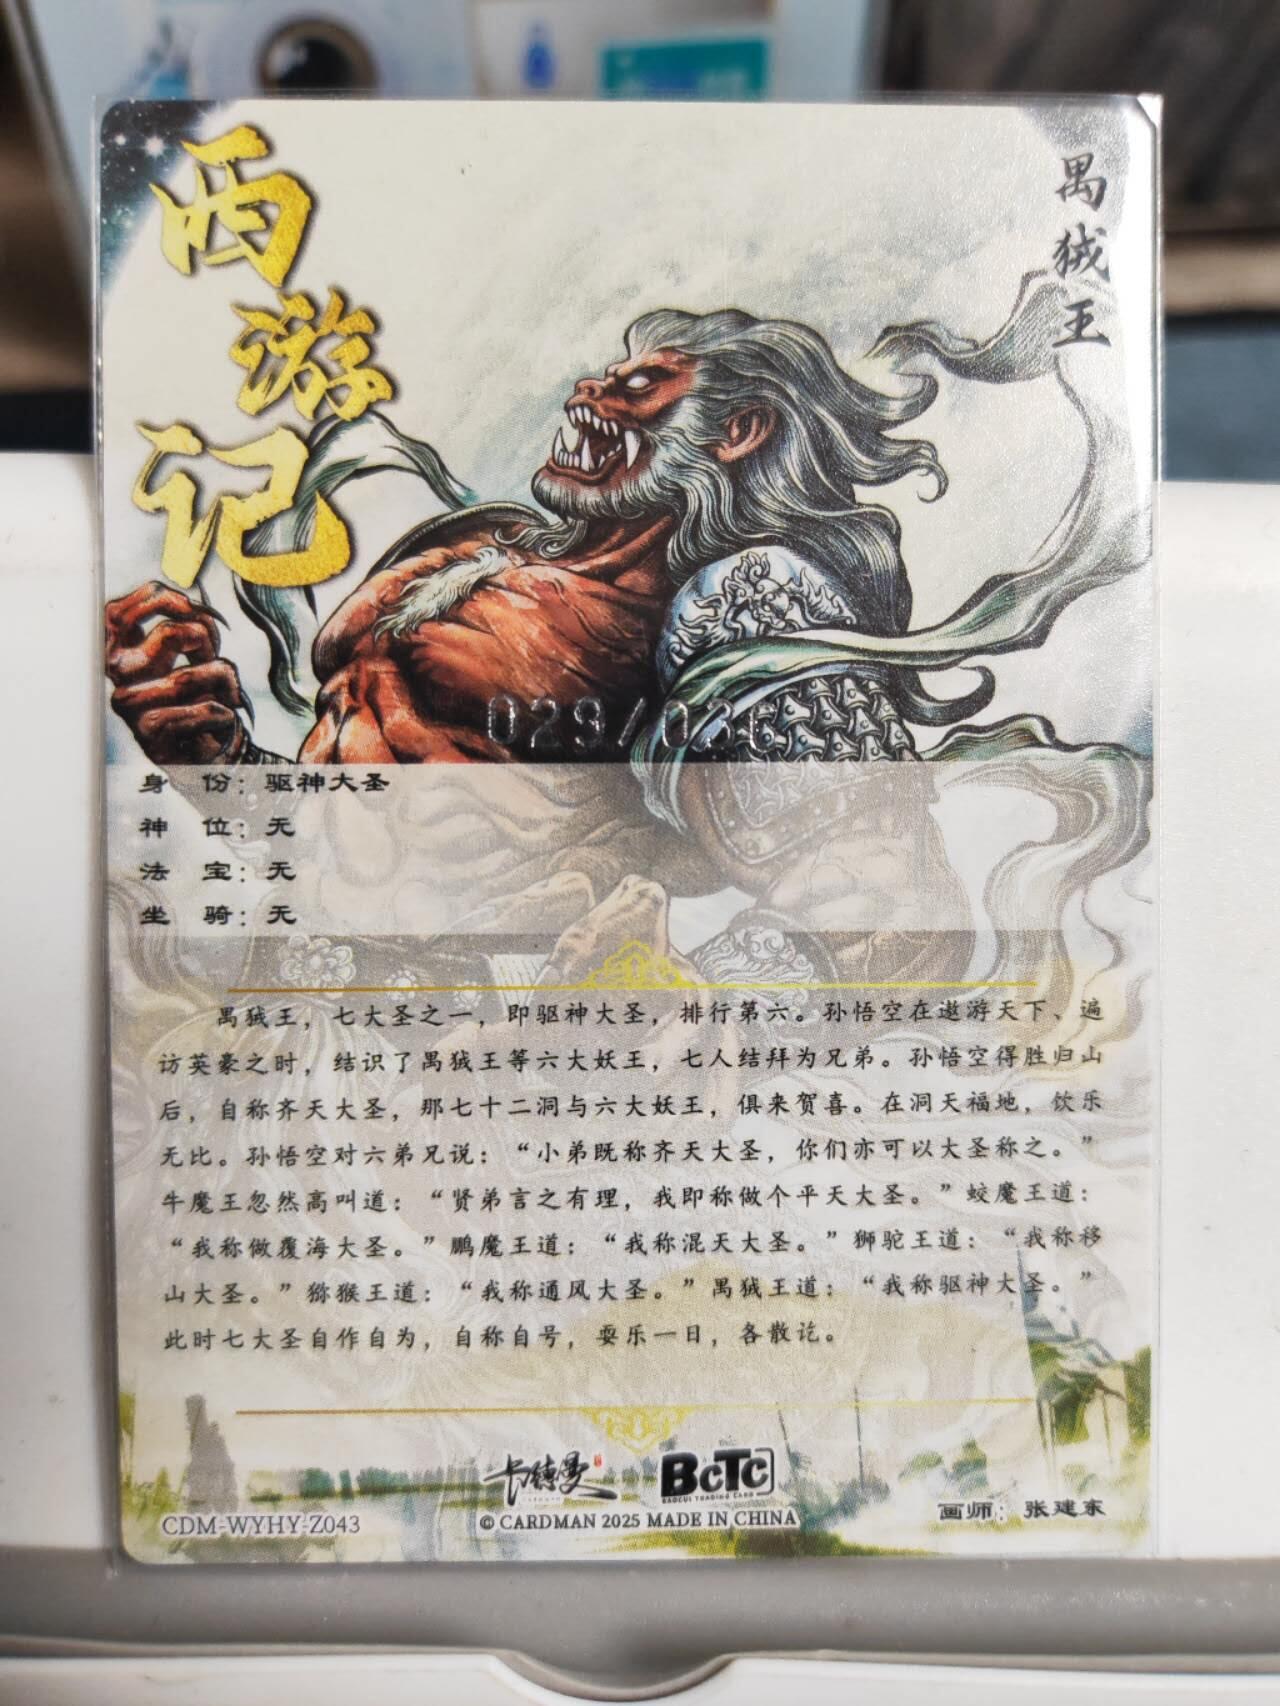 西游记
禺狨王
029/036
身 份：驱神大圣
神 位：无
法 宝：无
坐 骑：无
禺狨王，七大圣之一，即驱神大圣，排行第六。孙悟空在遨游天下、遍
访英豪之时，结识了禺狨王等六大妖王，七人结拜为兄弟。孙悟空得胜归山
后，自称齐天大圣，那七十二洞与六大妖王，俱来贺喜。在洞天福地，饮乐
无比。孙悟空对六弟兄说：“小弟既称齐天大圣，你们亦可以大圣称之。”
牛魔王忽然高叫道：“贤弟言之有理，我即称做个平天大圣。”蛟魔王道：
“我称做覆海大圣。”鹏魔王道：“我称混天大圣。”狮驼王道：“我称移
山大圣。”猕猴王道：“我称通风大圣。”禺狨王道：“我称驱神大圣。”
此时七大圣自作自为，自称自号，耍乐一日，各散讫。
卡德曼
BCTC
CDM-WYHY-Z043
© CARDMAN 2025 MADE IN CHINA
画师：张建东